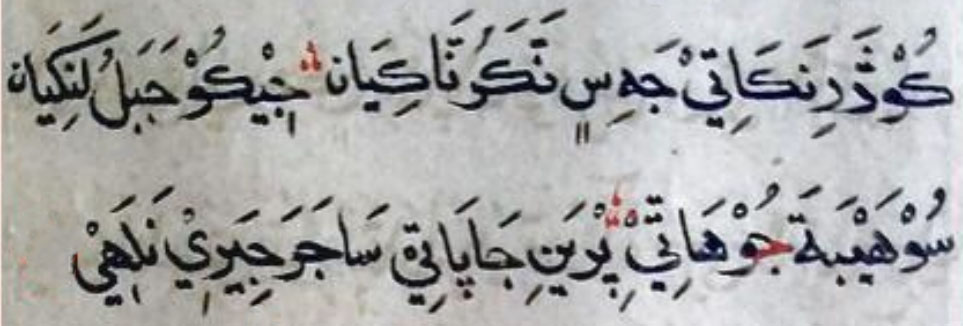 كُوْدَّرِنَكَاتِيْ جَهِ سِ نَكَرُنَّاكِيَانْ جِيْكُوْ جَبَلُ لَنِكِيَانْ
سُوْهَيْبَةَ جُوْهَاتِيّْ پْرَيَنِ جَاپَاتِيّ سَاجَرَ جِيَرِيْ نَلَهَيْ